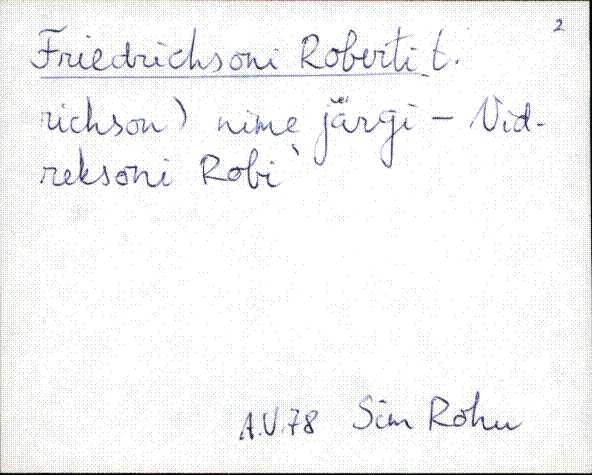 2
Friedrichsoni Roberti t.
richson) nime järgi - Vid-
reksoni Robi`
A.V.78 Sim Rohu